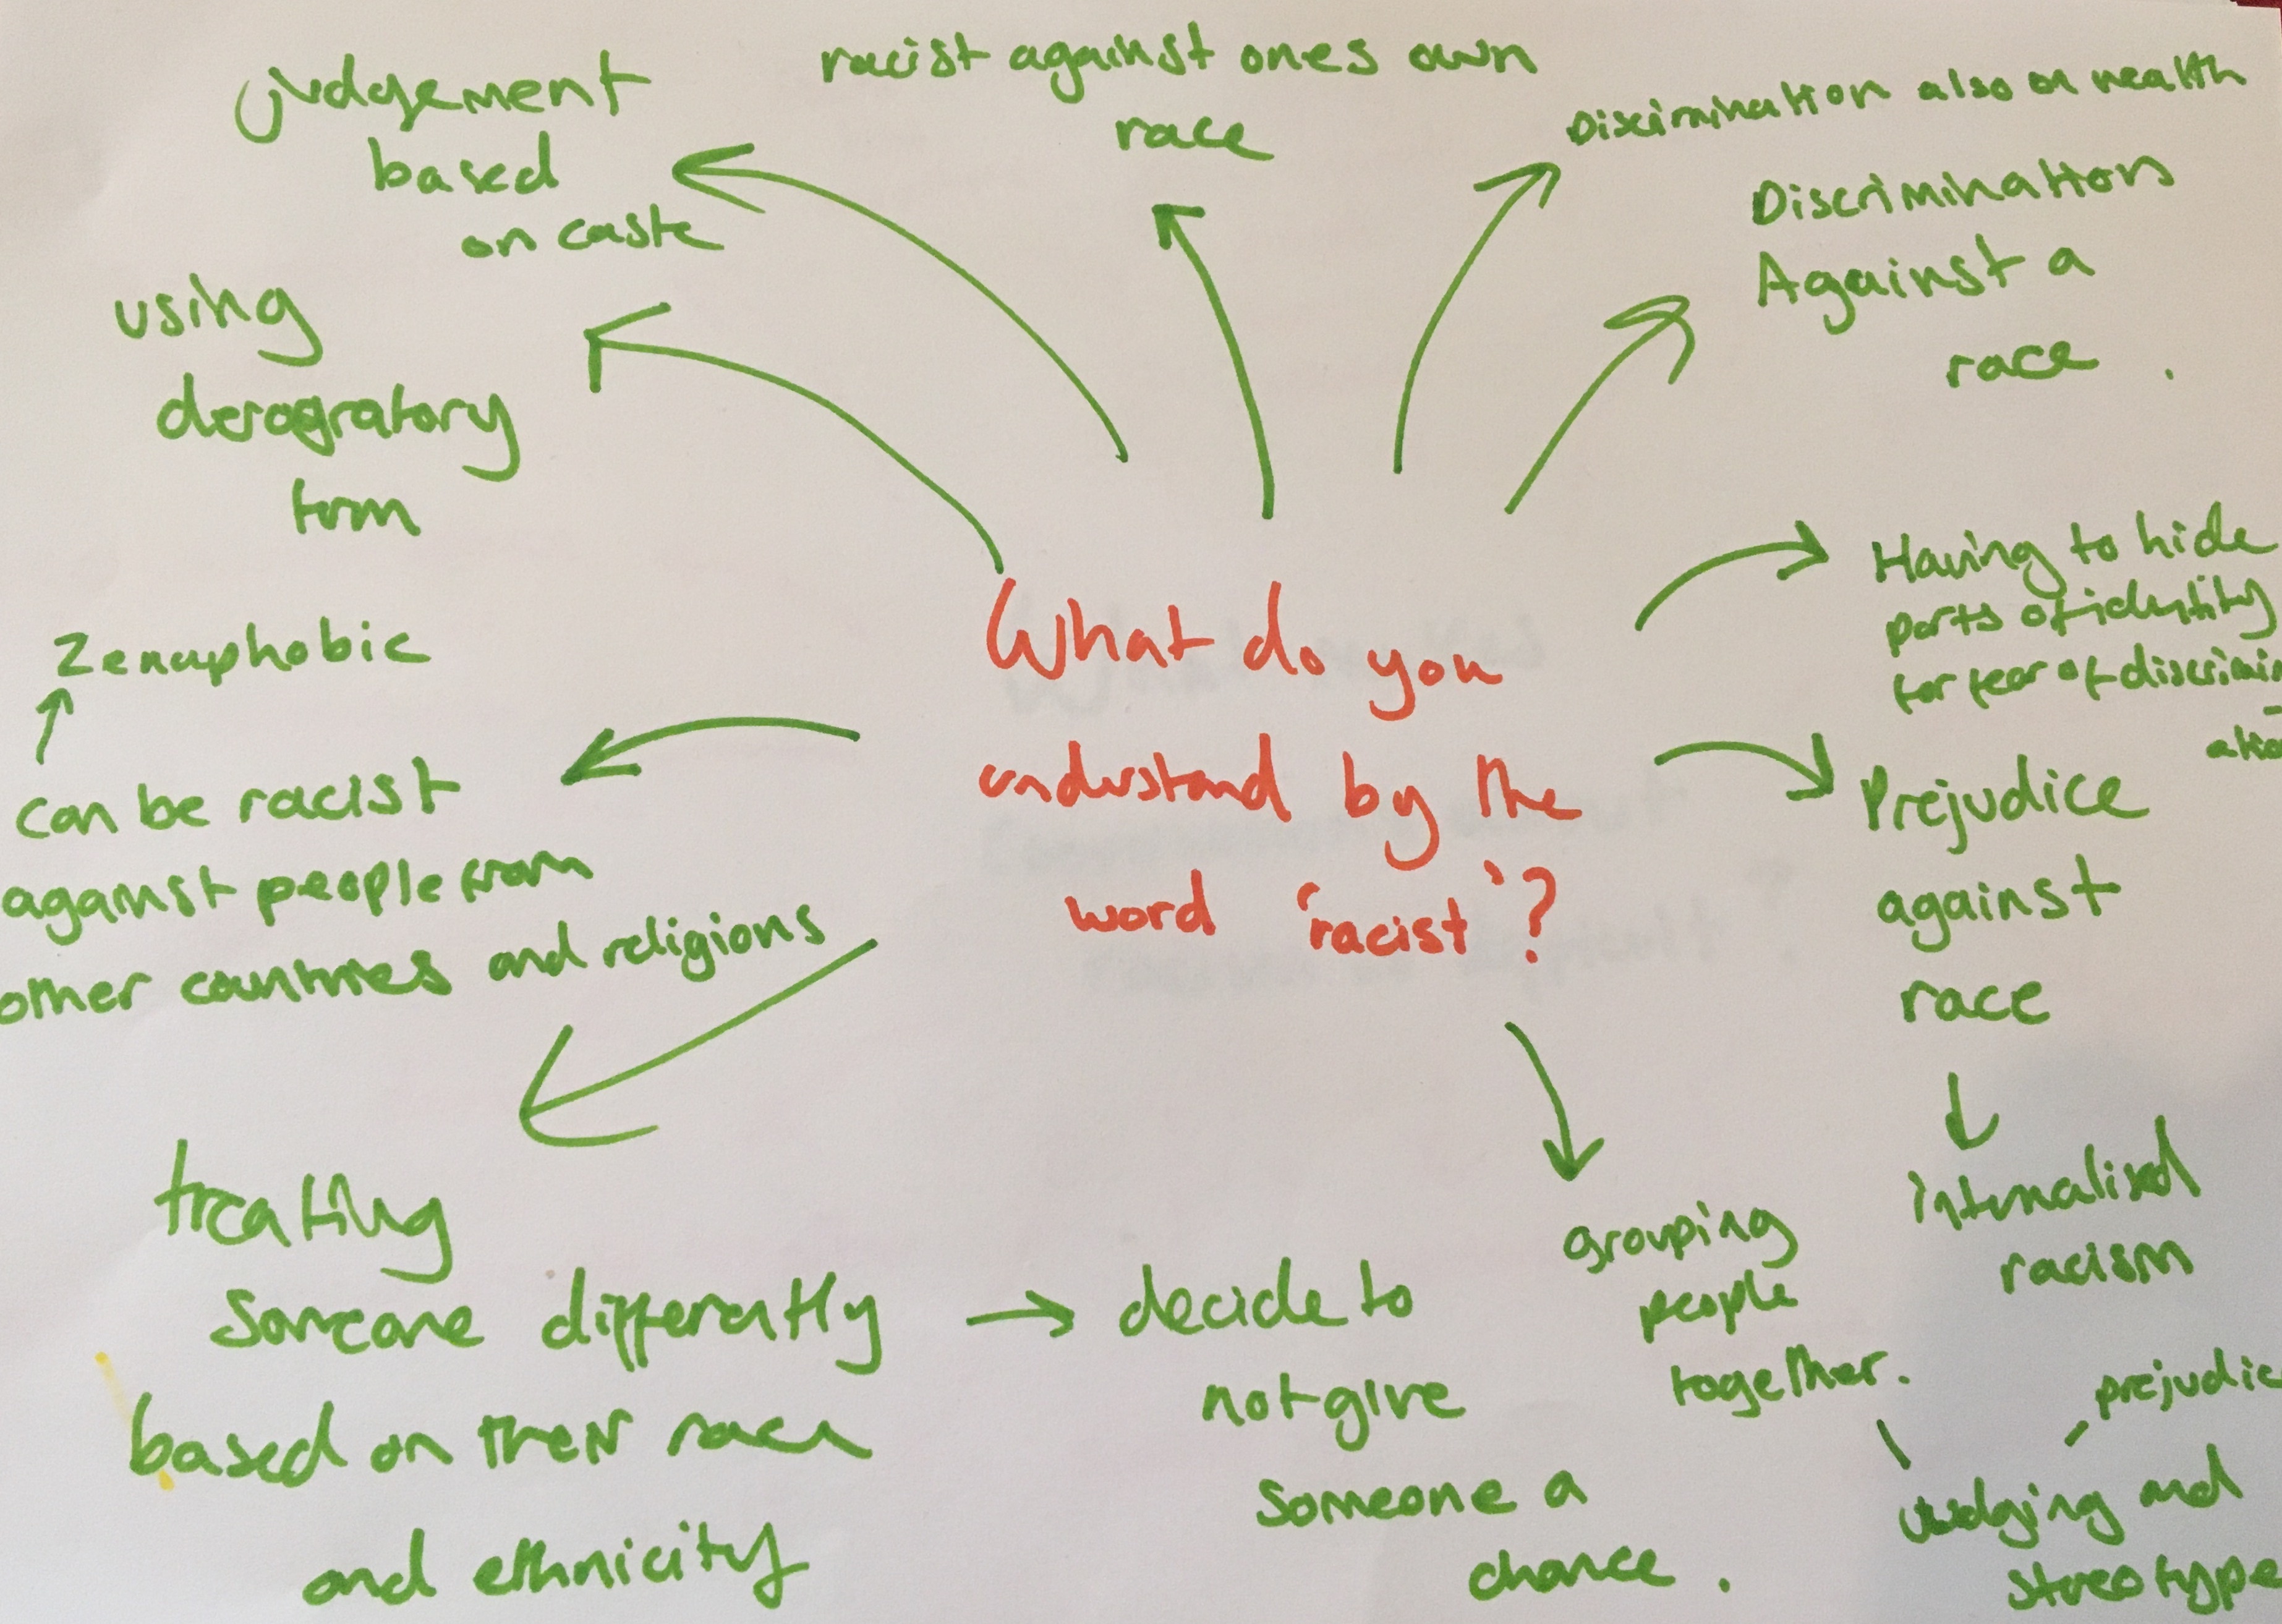 What do you
understand by the
word 'racist'?
judgement
based
on caste
racist against ones own
race
Discrimination also on wealth
Discrimination
Against a
race.
using
derogratory
term
Having to hide
parts of identity
for fear of discrimin-
atio
Zenaphobic
can be racist
against people from
other countries and religions
Prejudice
against
race
internalised
racism
treating
someone differently
based on their race
and ethnicity
decide to
not give
someone a
chance.
grouping
people
together.
prejudic
Judging and
stereotype